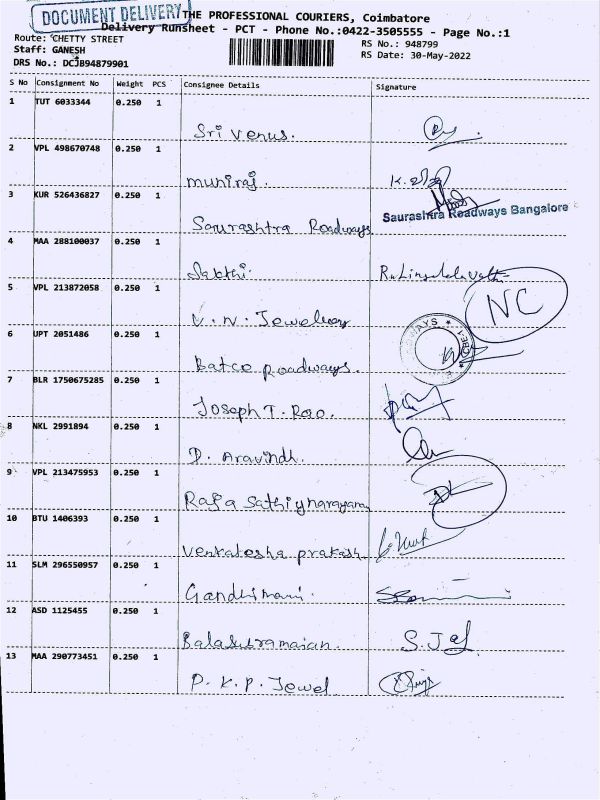 DOCUMENT DELIVERY
THE PROFESSIONAL COURIERS, Coimbatore
Delivery Runsheet - PCT - Phone No.:0422-3505555 - Page No.:1
Route: CHETTY STREET
RS No.: 948799
Staff: GANESH
RS Date: 30-May-2022
DRS No.: DCJB94879901
S No Consignment No Weight PCS Consignee Details Signature
1 TUT 6033344 0.250 1
Sri Venus.
2 VPL 498670748 0.250 1
muniraj.
3 KUR 526436827 0.250 1
Saurashtra Roadways
Saurashtra Roadways Bangalore
4 MAA 288100037 0.250 1
Sakthi.
5 VPL 213872058 0.250 1
V. N. Jewellery
NC
6 UPT 2051486 0.250 1
Batco roadways.
7 BLR 1750675285 0.250 1
Joseph T. Rao.
8 NKL 2991894 0.250 1
D. Aravindh.
9 VPL 213475953 0.250 1
Raja Sathiynarayanan
10 BTU 1406393 0.250 1
Venkatesha prakash.
11 SLM 296550957 0.250 1
Gandhimani.
12 ASD 1125455 0.250 1
Balasubramaian.
13 MAA 290773451 0.250 1
P. K. P. Jewel